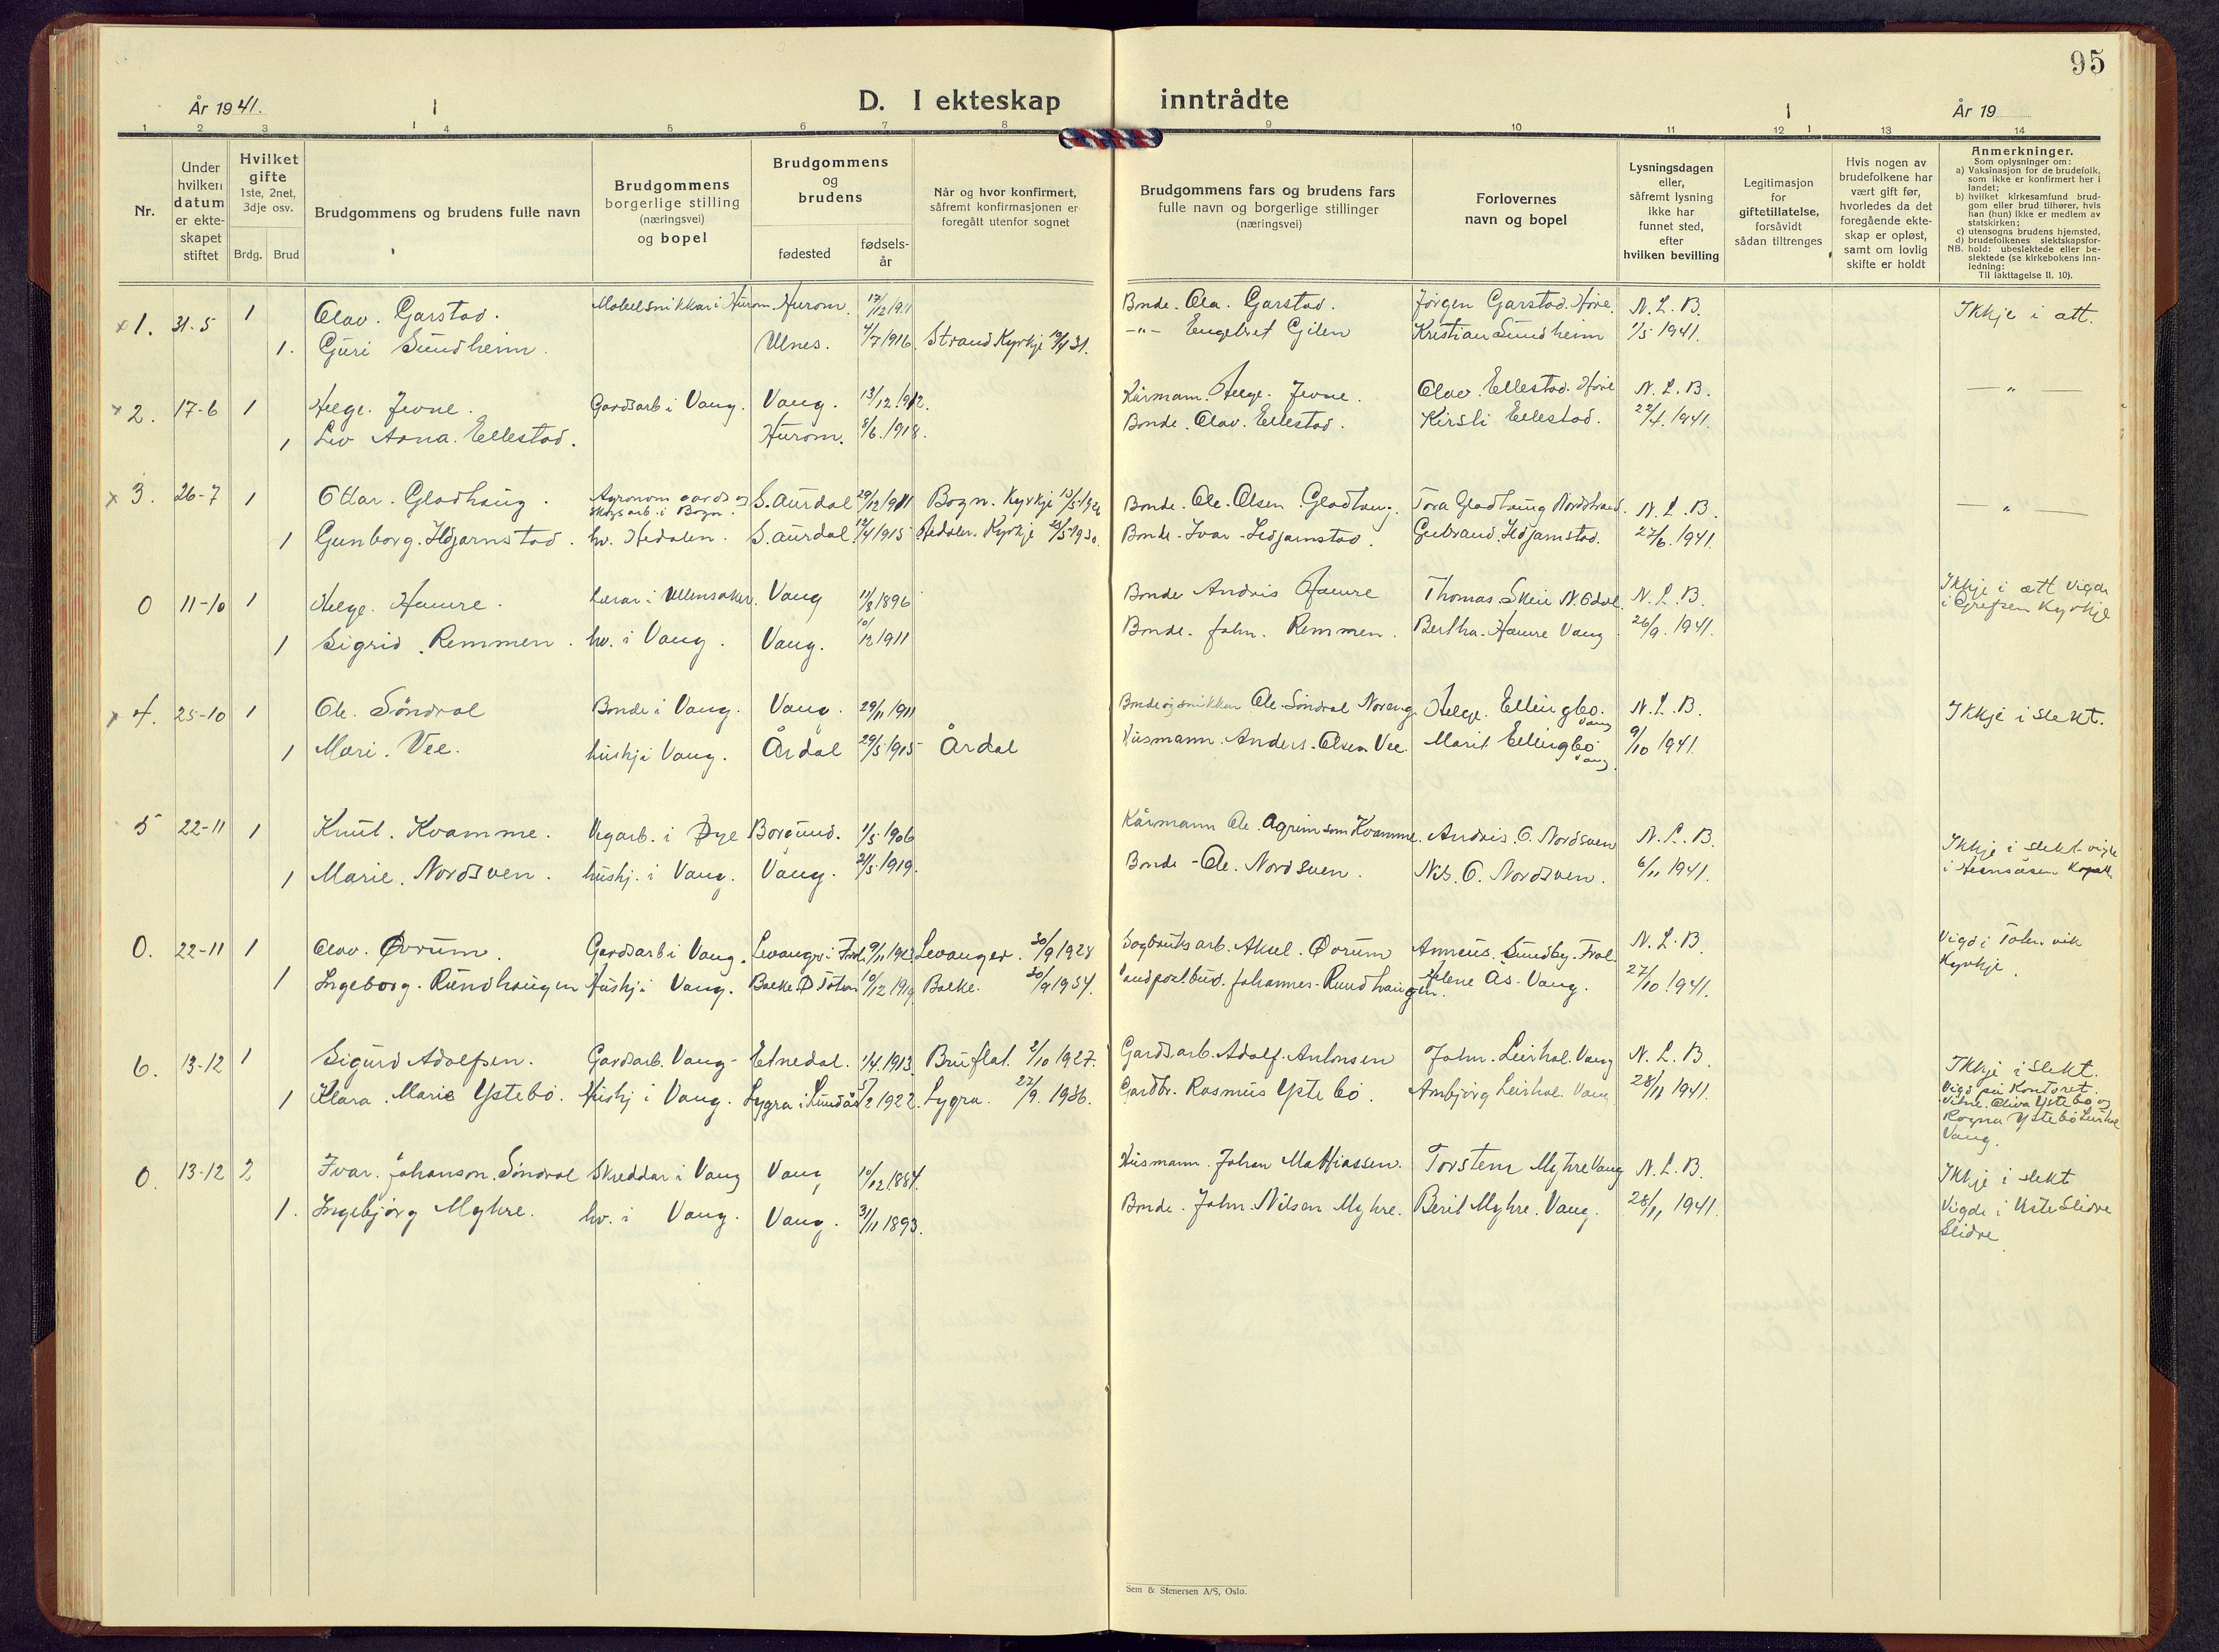 95
År 1941.
D. I ekteskap inntrådte
År 19
1 2 3 4 5 6 7 8 9 10 11 12 13 14
Nr.
Under hvilken datum er ekteskapet stiftet
Hvilket gifte 1ste, 2net, 3dje osv.
Brdg. Brud
Brudgommens og brudens fulle navn
Brudgommens borgerlige stilling (næringsvei) og bopel
Brudgommens og brudens
fødested
fødselsår
Når og hvor konfirmert, såfremt konfirmasjonen er foregått utenfor sognet
Brudgommens fars og brudens fars fulle navn og borgerlige stillinger (næringsvei)
Forlovernes navn og bopel
Lysningsdagen eller, såfremt lysning ikke har funnet sted, efter hvilken bevilling
Legitimasjon for giftetillatelse, forsåvidt sådan tiltrenges
Hvis nogen av brudefolkene har vært gift før, hvorledes da det foregående ekteskap er opløst, samt om lovlig skifte er holdt
Anmerkninger.
Som oplysninger om:
a) Vaksinasjon for de brudefolk, som ikke er konfirmert her i landet;
b) hvilket kirkesamfund brudgom eller brud tilhører, hvis han (hun) ikke er medlem av statskirken;
c) utensogns brudens hjemsted,
d) brudefolkenes slektskapsforhold: ubeslektede eller beslektede (se kirkebokens innledning:
NB.
Til iakttagelse II. 10).
x 1. 31-5 1 Olav. Garstad. Møbelsnikkar i Hurom. Hurom. 17/12 1911 Bonde. Ola. Garstad. Jørgen Garstad. Høre. N. L. B. Ikkje i ætt.
1. Guri Sundheim. Ulnes. 4/7 1916. Strand Kyrkje 31. -"- Engebret Gilen Kristian Sundheim 1/5 1941.
x 2. 17-6 1 Helge. Jevne. Gardsarb i Vang. Vang. 13/12 1912. Kårmann. Helge. Jevne. Olav. Ellestad. Høre N. L. B. — " —
1 Liv Anna. Ellestad. Hurom. 8/6. 1918. Bonde. Olav. Ellestad. Kirsti Ellestad. 22/4. 1941.
x 3. 26-7 1 Ottar. Gladhaug. Agronom gards og skogsarb. i Bagn. S. Aurdal 29/12 1911 Bagn. Kyrkje Bonde. Ole. Olsen. Gladhaug. Tora Gladhaug N. L. B. — " —
1 Gunborg. Hdjarnstad. hv. Hedalen. S. Aurdal 12/4 1915 Hedalen. Kyrkje 25/5 1930. Bonde. Ivar. Gulbrand. 27/6. 1941.
0 11-10 1 Helge. Hamre. Lærar i Ullensaker. Vang 11/3 1896 Bonde Andris Hamre Thomas. Skeie N. Odal N. L. B. Ikkje i ætt Vigde i Grefsen Kyrkje
1 Sigrid. Remmen. hv. i Vang. Vang. 10/12 1911 Bonde. John. Remmen. Bertha. Hamre Vang 26/9. 1941.
x 4. 25-10 1 Ole. Søndrol Bonde i Vang. Vang. 29/11 1911 Bonde og snikkar Ole Søndrol Helge. Ellingbø. Vang N. L. B. Ikkje i slekt.
1 Mari. Vee. hushj i Vang. Årdal 29/5 1915 Årdal Husmann. Anders. Olsen Vee. Marit Ellingbø Vang 9/10 1941.
5 22-11 1 Knut. Kvamme. Vegarb. i Øye Borgund. 1/5 1906 Kårmann Ole. Kvamme. Andris. O. Nordsven N. L. B. Ikkje i slekt vigde i Hensåsen
1 Marie. Nordsven. hushj. i Vang. Vang. 21/5 1919. Bonde - Ole. Nordsven. Nils. O. Nordsven. 6/11 1941.
0. 22-11 1 Olav. Ørum. Gardsarb i Vang. Levanger 9/11 1913 Levanger. 30/9 1928 Sagbruksarb. Aksel. Ørum N. L. B. Vigd i Kyrkje.
1 Ingeborg. Rundhaugen Hushj i Vang. 10/12 1919 30/9 1934. Landpostbud. Johannes. Rundhaugen. Helene Ås. Vang. 27/10 1941.
6. 13-12 1 Sigurd Adolfsen. Gardsarb. Vang - Etnedal. 1/4 1913. Bruflat. 2/10 1927. Gardsarb. Adolf. Antonsen John. Leirhol. Vang N. L. B. Ikkje i slekt. Vigd på Kontoret.
1 Klara. Marie Ystebø. Hushj i Vang. Lygra i Lindås 5/2 1922. Lygra. 27/9. 1936. Gardbr. Rasmus Ystebø. Ambjørg Leirhol. Vang 28/11 1941. Vitne. Oliva Ystebø og Ragna Ystebø Leirhol Vang.
0. 13-12 2 Ivar. Johanson. Søndrol Skreddar i Vang Vang 10/12 1884. Husmann. Johan Mathiassen. Torstein Myhre Vang N. L. B. Ikkje i slekt
1. Ingebjørg Myhre. hv. i Vang. Vang. 31/11 1893. Bonde. John. Nilsen Myhre. Berit Myhre. Vang. 28/11 1941. Vigde i Slidre
Sem & Stenersen A/S, Oslo.